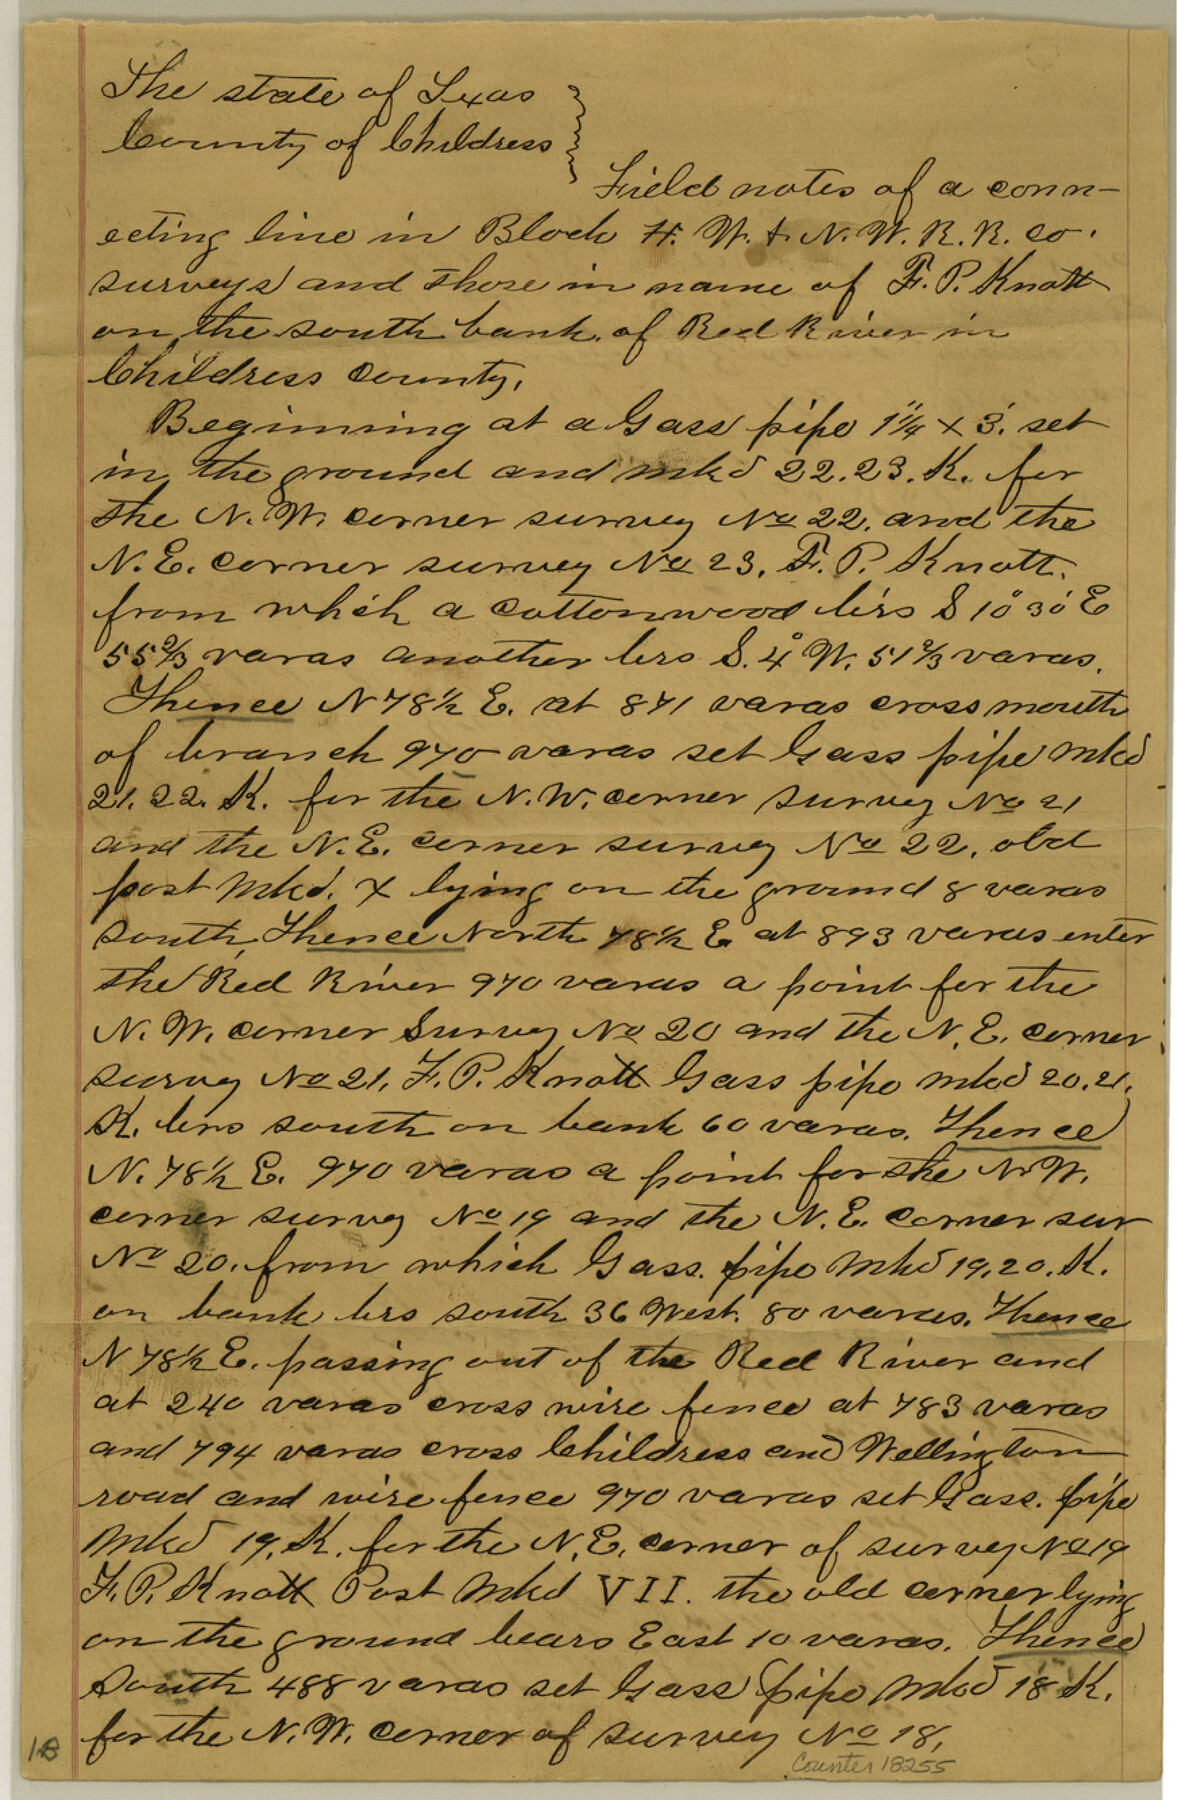 The state of Texas
County of Childress
Field notes of a conn-
ecting line in Block H. W. & N. W. R. R. co.
surveys and those in name of F. P. Knott
on the south bank of Red River in
Childress County,
Beginning at a Gass pipe 1¼" x 3' set
in the ground and mkd 22.23. K. for
the N. W. corner survey No 22. and the
N. E. corner survey No 23. F. P. Knott.
from which a cottonwood brs S 10° 30' E
55⅔ varas another brs S. 4° W. 51⅔ varas.
Thence N 78½ E. at 871 varas cross mouth
of branch 970 varas set Gass pipe mkd
21. 22. K. for the N. W. corner survey No 21
and the N. E. corner survey No 22. old
post mkd. X lying on the ground 8 varas
south, Thence North 78½ E at 893 varas enter
the Red River 970 varas a point for the
N. W. corner Survey No 20 and the N. E. corner
survey No 21. F. P. Knott Gass pipe mkd 20.21.
K. brs south on bank 60 varas. Thence
N. 78½ E. 970 varas a point for the N. W.
corner survey No 19 and the N. E. corner sur
No 20. from which Gass. pipe mkd 19.20. K.
on bank brs south 36 West. 80 varas. Thence
N 78½ E. passing out of the Red River and
at 240 varas cross wire fence at 783 varas
and 794 varas cross Childress and Wellington
road and wire fence 970 varas set Gass. pipe
mkd 19. K. for the N. E. corner of survey No 19
F. P. Knott Post mkd VII. the old corner lying
on the ground bears East 10 varas. Thence
South 488 varas set Gass pipe mkd 18 K.
for the N. W. corner of survey No 18,
Counter 18255